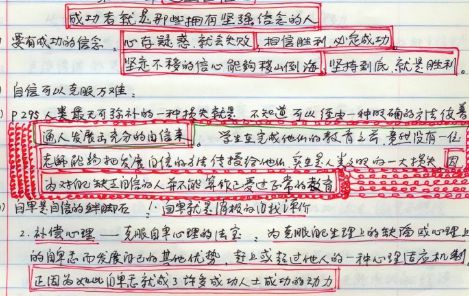 成功者就是那些拥有坚强信念的人
要有成功的信念, 心存疑惑, 就会失败, 相信胜利, 必定成功
坚定不移的信心能够移山倒海, 坚持到底, 就是胜利。
自信可以克服万难.
P295 人类最无可弥补的一种损失就是 不知道可以经由一种明确的方法使普
通人发展出充分的自信来。 学生在完成他们的教育之前, 竟然没有一位
老师能够把发展自信的方法传授给他们, 实在是人类文明的一大损失 因
为对自己缺乏自信的人并不能算作已受过正常的教育
自卑是自信的绊脚石 自卑就是消极的自我评价
2. 补偿心理 — 克服自卑心理的法宝 为克服自己生理上的缺陷或心理上
的自卑感而发展自己的其他优势, 赶上或超过他人的一种心理适应机制
正因为如此自卑感就成了许多成功人士成功的动力